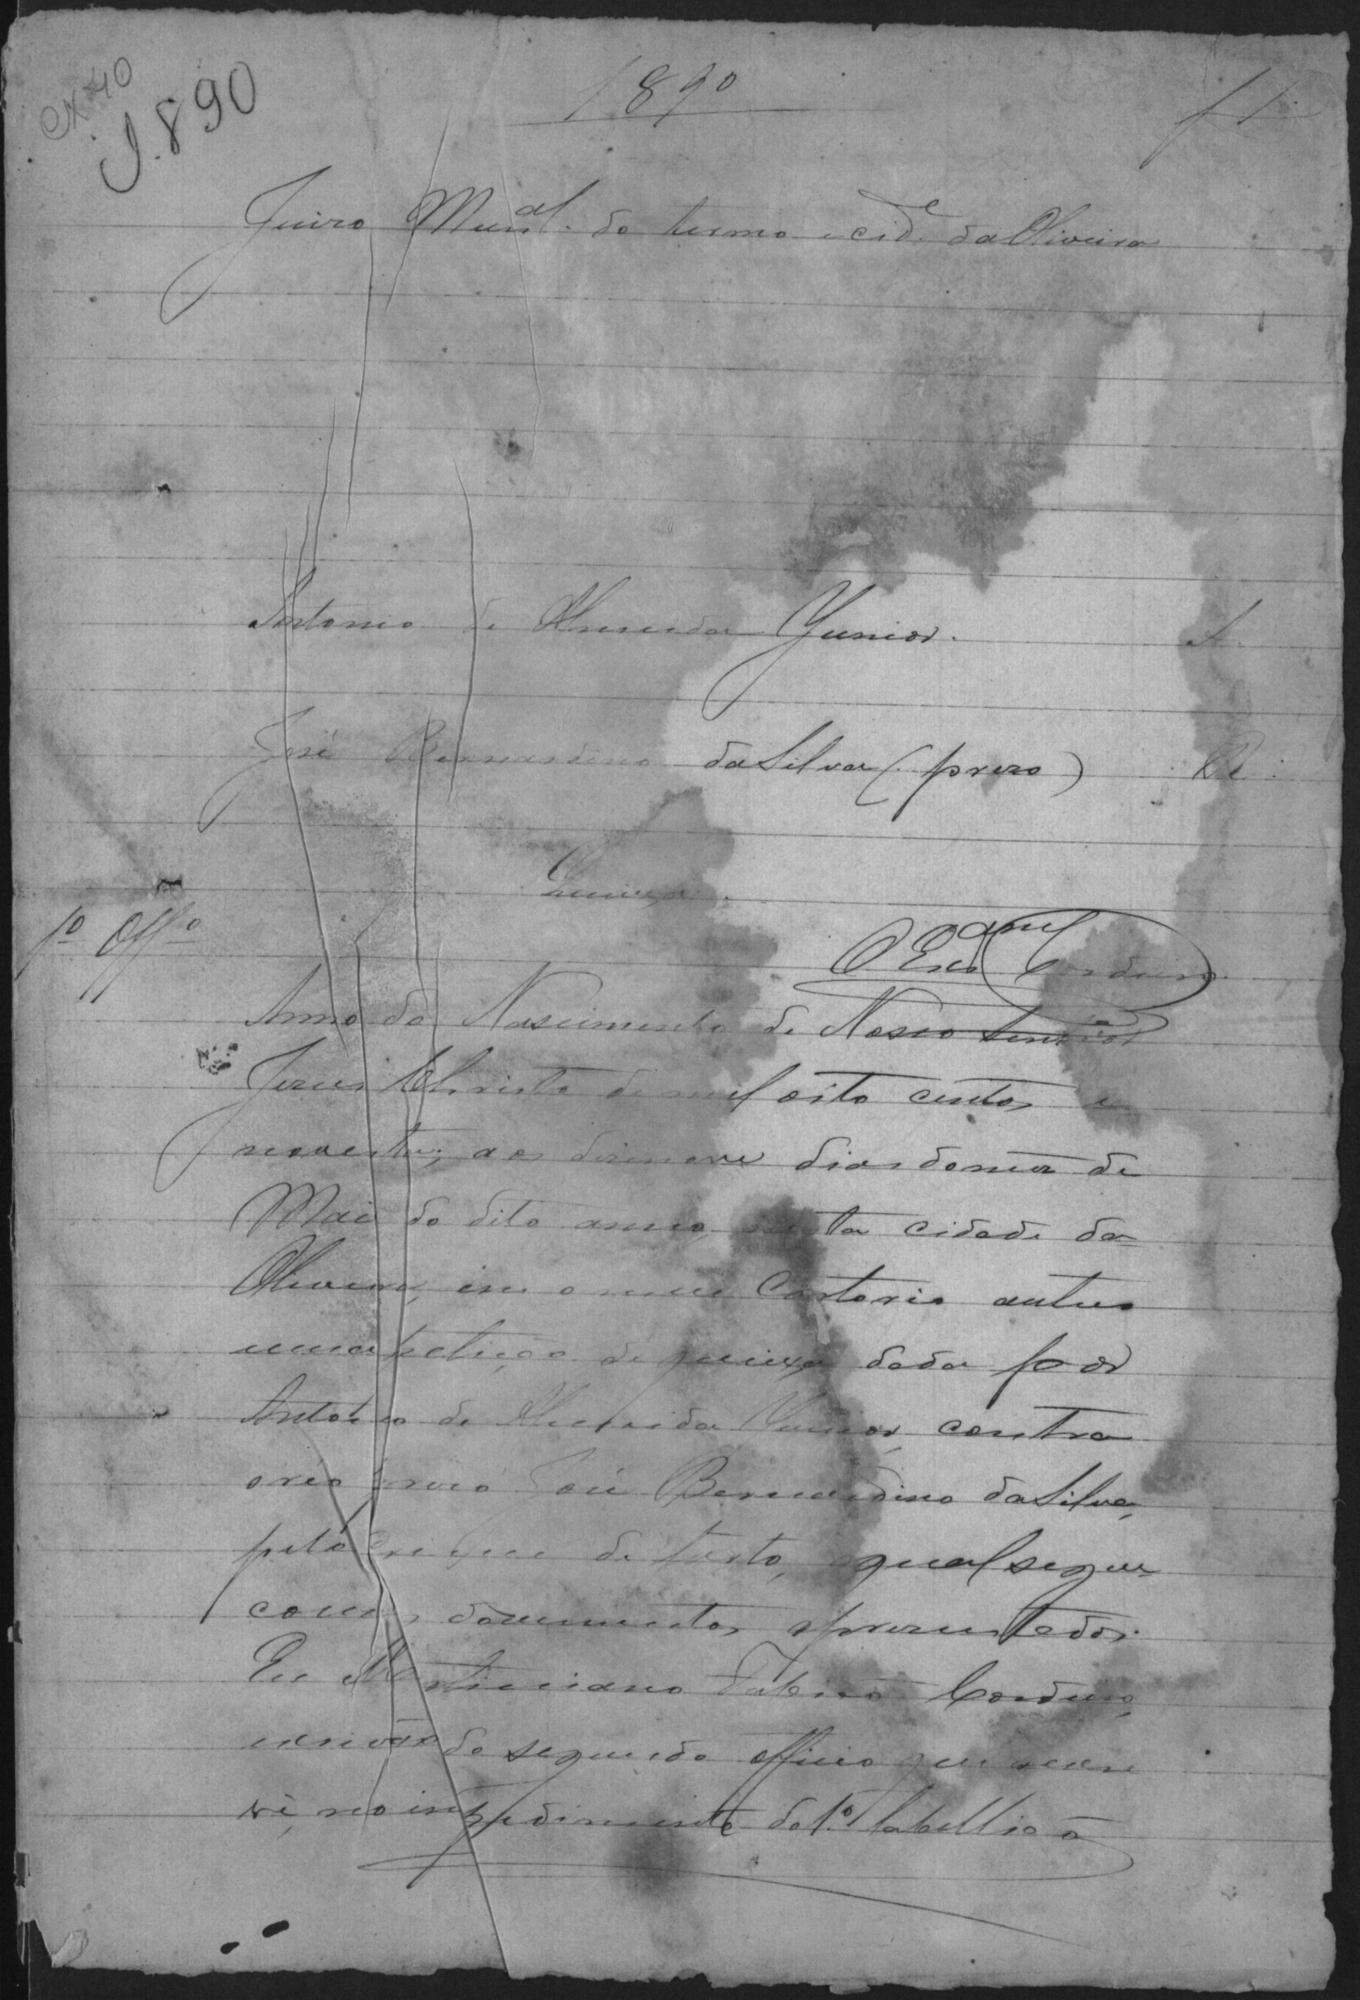 CX 40
J. 890
1890
f 1
Juizo Mun.al do termo e cid.e da Oliveira
Antonio de Almeida Junior. A.
José Bernardino da Silva (prezo) Re.
Queixa.
1º Offº
O Escam Cordeiro
Anno do Nascimento de Nosso Senhor
Jesus Christo de mil oito centos e
noventa, aos dezenove dias do mez de
Maio do dito anno, nesta cidade da
Oliveira, em o meu Cartorio autuo
uma petição de queixa dada por
Antonio de Almeida Junior, contra
o réo prezo José Bernardino da Silva,
pelo crime de furto, a qual segue
com os documentos apresentados.
Eu Martiniano Cordeiro,
escrivão do segundo officio que escre
vi, no impedimento do 1.º tabellião